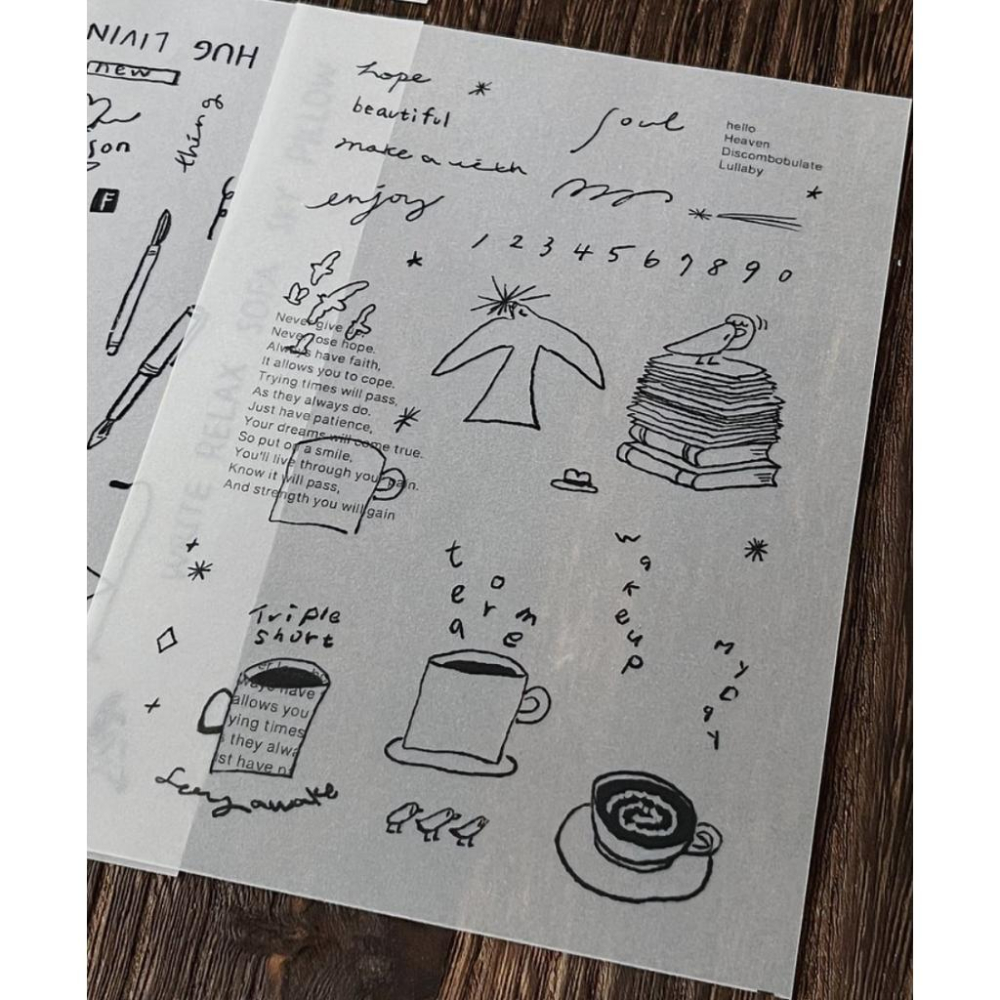 HUG LIVIN
new
thin of
son
F
hope
beautiful
make a with
enjoy
soul
hello
Heaven
Discombobulate
Lullaby
1 2 3 4 5 6 7 8 9 0
Never give up.
Never lose hope.
Always have faith,
It allows you to cope.
Trying times will pass,
As they always do.
Just have patience,
Your dreams will come true.
So put on a smile,
You'll live through your pain.
Know it will pass,
And strength you will gain
WRITE RELAX SOFA SKY PILLOW
tea
or
me
wakeup
My
Triple
short
ways have
allows you
ying times
they alwa
st have p
awake